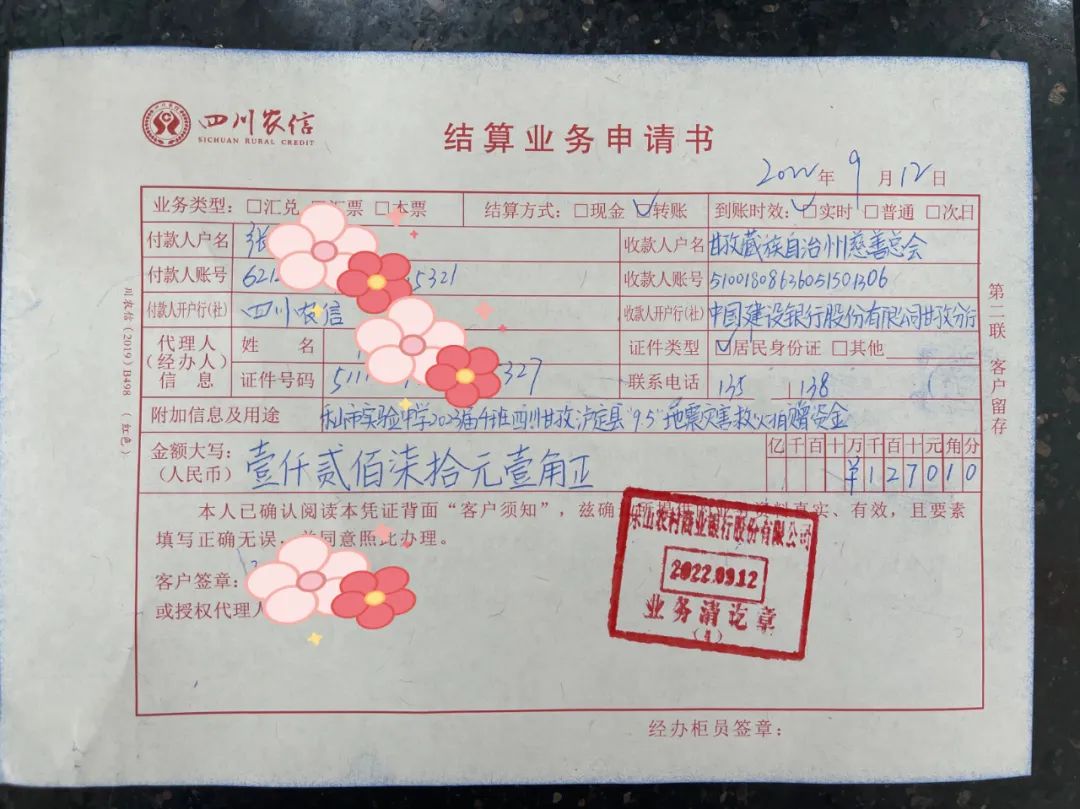 四川农信
SICHUAN RURAL CREDIT
结算业务申请书
2022年 9 月 12 日
业务类型: □汇兑 汇票 □本票 结算方式: □现金 ☑转账 到账时效: ☑实时 □普通 □次日
付款人户名 张 收款人户名 甘孜藏族自治州慈善总会
付款人账号 621 5321 收款人账号 51001808636051501306
付款人开户行(社) 四川农信 收款人开户行(社) 中国建设银行股份有限公司甘孜分行
代理人(经办人)信息 姓名 证件类型 ☑居民身份证 □其他
证件号码 511 327 联系电话 135 1138
附加信息及用途 乐山市实验中学2023届4班四川甘孜泸定县"9.5"地震灾害救灾捐赠资金
金额大写: (人民币) 壹仟贰佰柒拾元壹角正 亿千百十万千百十元角分
¥127010
本人已确认阅读本凭证背面“客户须知”,兹确 真实、有效,且要素
填写正确无误,并同意照此办理。
客户签章:
或授权代理人
乐山农村商业银行股份有限公司
2022.09.12
业务清讫章
(4)
经办柜员签章:
川农信(2019)B498 (红色)
第二联 客户留存